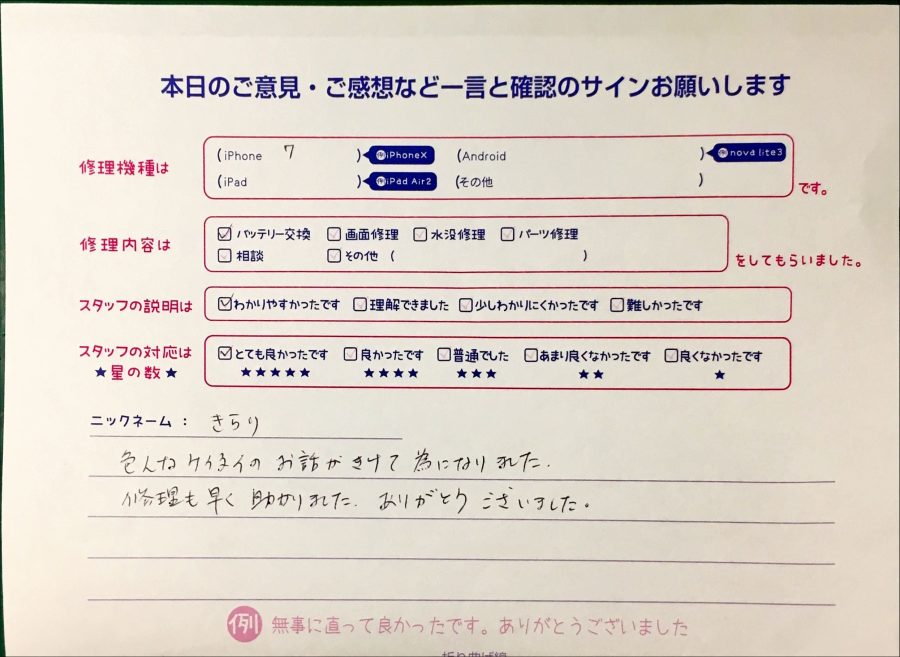 本日のご意見・ご感想など一言と確認のサインお願いします
修理機種は (iPhone 7 ) 例iPhoneX (Android ) 例nova lite3
(iPad ) 例iPad Air2 (その他 ) です。
修理内容は バッテリー交換 画面修理 水没修理 パーツ修理
相談 その他 ( ) をしてもらいました。
スタッフの説明は わかりやすかったです 理解できました 少しわかりにくかったです 難しかったです
スタッフの対応は とても良かったです 良かったです 普通でした あまり良くなかったです 良くなかったです
★星の数★ ★★★★★ ★★★★ ★★★ ★★ ★
ニックネーム : きらり
色んなケイタイの お話がきけて 為になりました.
修理も早く 助かりました. ありがとう ございました。
例 無事に直って良かったです。ありがとうございました